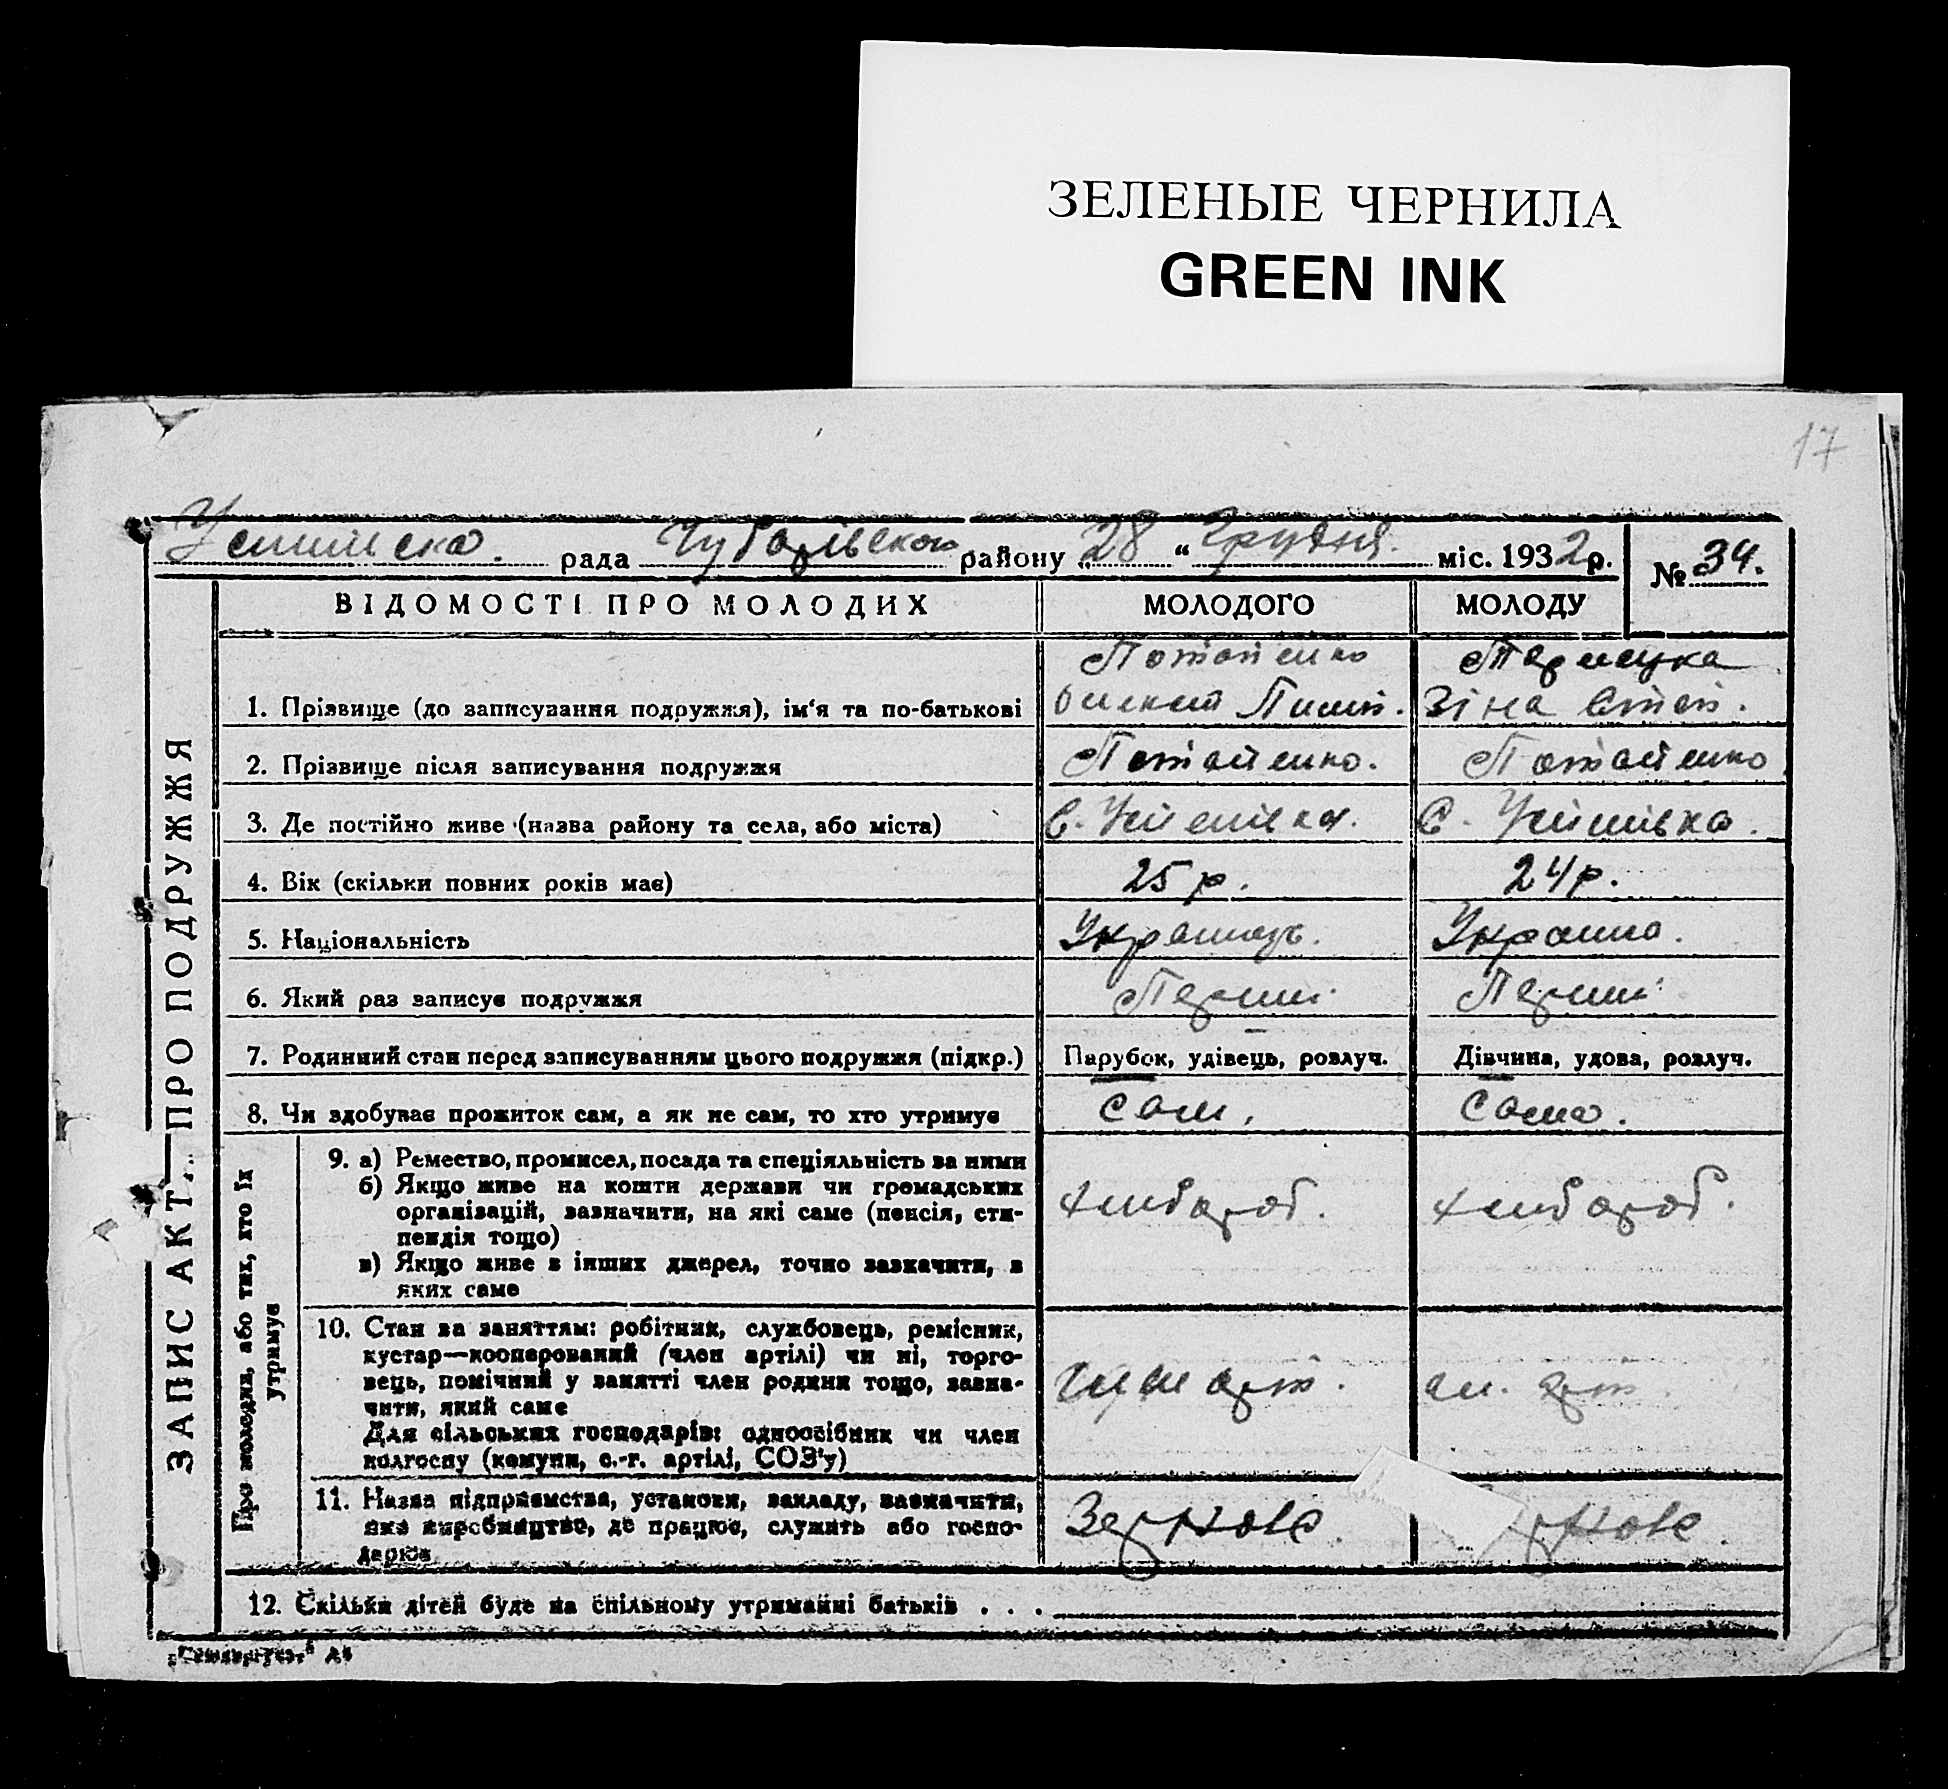 ЗЕЛЕНЫЕ ЧЕРНИЛА
GREEN INK
17
рада Чубарівського району „28“ Грудня. міс. 1932р.
№ 34.
ЗАПИС АКТ.. ПРО ПОДРУЖЖЯ
ВІДОМОСТІ ПРО МОЛОДИХ МОЛОДОГО МОЛОДУ
Потапенко
1. Прізвище (до записування подружжя), ім‘я та по-батькові Зіна Степ.
2. Прізвище після записування подружжя Потапенко. Потапенко
3. Де постійно живе (назва району та села, або міста) С. Успенівка. С. Успинівка.
4. Вік (скільки повних років має) 25 р. 24 р.
5. Національність Українець. Україн.
6. Який раз записує подружжя Перший Перший
7. Родинний стан перед записуванням цього подружжя (підкр.) Парубок, удівець, розлуч. Дівчина, удова, розлуч.
8. Чи здобуває прожиток сам, а як не сам, то хто утримує Сам. Сама.
Про молодих, або тих, хто їх утримує
9. а) Ремество, промисел, посада та спеціяльність за ними
б) Якщо живе на кошти держави чи громадських хлібороб. хлібороб.
організацій, зазначити, на які саме (пенсія, сти-
пендія тощо)
в) Якщо живе з інших джерел, точно зазначити, з
яких саме
10. Стан за заняттям: робітник, службовець, ремісник,
кустар—кооперований (член артілі) чи ні, торго-
вець, помічний у занятті член родини тощо, зазна- член арт. чл. арт.
чити, який саме
Для сільських господарів: одноосібник чи член
колгоспу (комуни, с.-г. артілі, СОЗ‘у)
11. Назва підприємства, установи, закладу, зазначити,
яке виробництво, де працює, служить або госпо- Зернове
дарює
12. Скільки дітей буде на спільному утриманні батьків . . .